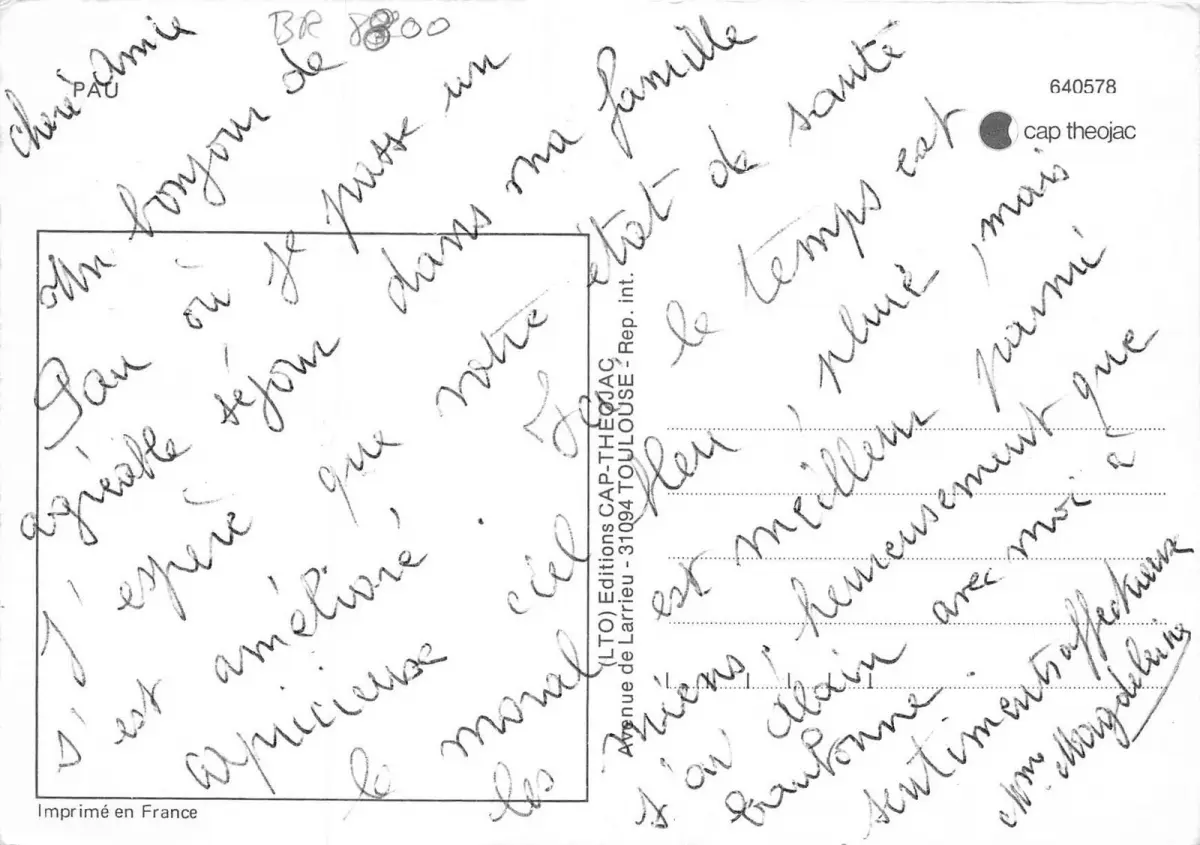 BR 8800
PAU
640578
cap theojac
cheré Amie
un bonjour de
Pau où je passe un
agréable séjour dans ma famille
j'esperé que votre état de santé
s'est amélioré. le temps est
capricieuse ciel bleu, pluié, mais
le moral est meilleur parmi
les miens, heureusement que
j'ai Alain avec moi à
sentiments affectueux
Mme Magdeleine
(LTO) Editions CAP-THEOJAC,
Avenue de Larrieu - 31094 TOULOUSE - Rep. int.
Imprimé en France